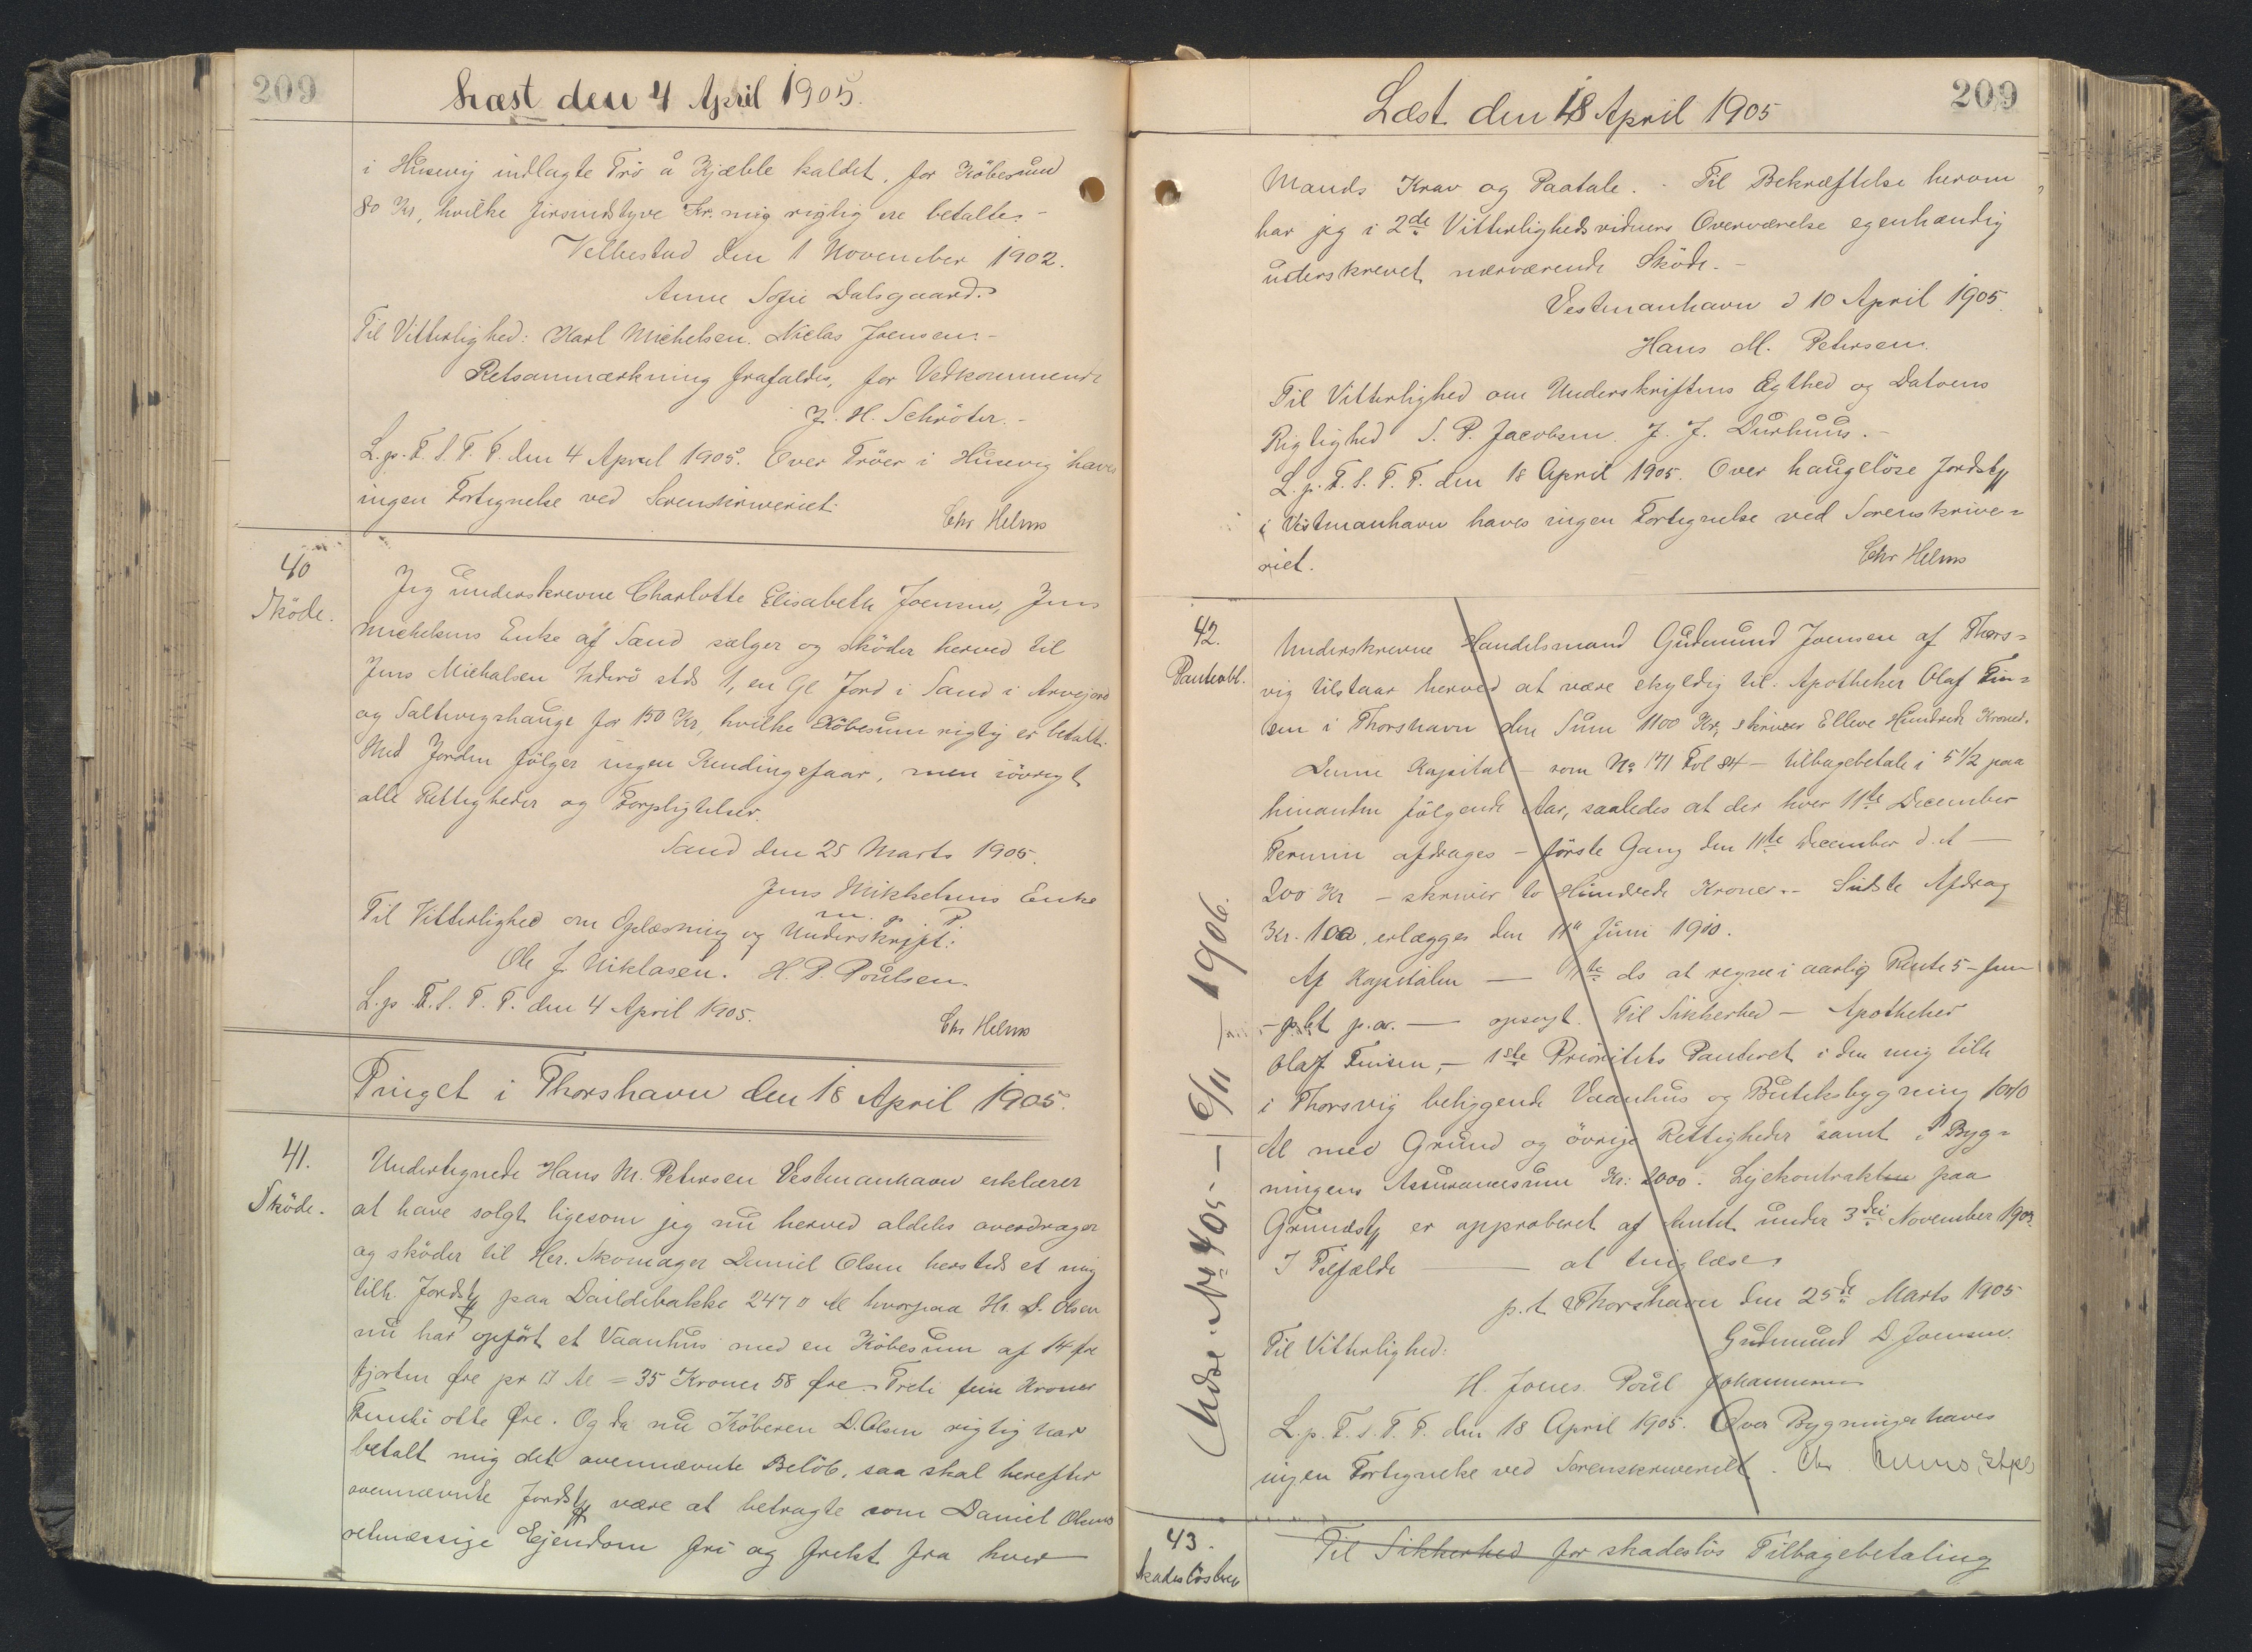 209
Læst den 4 April 1905.
i Husevig indlagte Trö á Kjælle kaldet, for Köbesum
80 Kr, hvilke firsindstyve Kr. mig rigtig ere betalte.-
Velbestad den 1 November 1902.
Anne Sofie Dalsgaard.
Til Vitterlighed: Karl Michelsen. Niclas Joensen.-
Retsanmærkning frafaldes, for Vedkommende
J. H. Schröter.-
L. p. F. S. T. P. den 4 April 1905. Over Tröer i Husevig haves
ingen Fortegnelse ved Sorenskriveriet.
Chr Helms
40
Sköde.
Jeg underskrevne Charlotte Elisabeth Joensen, Jens
Michelsens Enke af Sand sælger og sköder herved til
Jens Michalsen Hdrö stds 1, en Gl Jord i Sand i Arvejord
og Saltvigshauge for 150 Kr, hvilke Köbesum rigtig er betalt.
Med Jorden fölger ingen Rendingsfaar, men iövrigt
alle Rettigheder og Forpligtelser.
Sand den 25 Marts 1905.
Jens Mikkelsens Enke
m. p. P.
Til Vitterlighed om Oplæsning og Underskrift:
Ole J. Niklasen. H. P. Poulsen.
L. p. F. S. T. P. den 4 April 1905.
Chr Helms
Tinget i Thorshavn den 18 April 1905.
41.
Sköde.
Undertegnede Hans M. Petersen Vestmanhavn erklærer
at have solgt ligesom jeg nu herved aldeles overdrager
og sköder til Hr. Skomager Daniel Olsen hersteds et mig
tilh. Jordst paa Daildebakke 247 □ Al hvorpaa Hr. D. Olsen
nu har opfört et Vaanhus med en Köbesum af 14 fre
fjorten Öre pr □ Al = 35 Kroner 58 Öre. Treti fem Kroner
Femti otte Öre. Og da nu Köberen D. Olsen rigtig har
betalt mig det ovennævnte Belöb, saa skal herefter
ovennævnte Jordst være at betragte som Daniel Olsens
retmæssige Ejendom fri og frelst fra hver
209
Læst den 18 April 1905
Mands Krav og Paatale. - Til Bekræftelse herom
har jeg i 2de Vitterlighedsvidners Overværelse egenhændig
uderskrevet nærværende Sköde.-
Vestmanhavn d 10 April 1905.
Hans M. Petersen.
Til Vitterlighed om Underskriftens Ægthed og Datoens
Rigtighed S. P. Jacobsen. J. J. Durhuus.-
L. p. F. S. T. P. den 18 April 1905. Over haugelöse Jordst
i Vestmanhavn haves ingen Fortegnelse ved Sorenskrive=
riet.
Chr Helms
42.
Panteobl.
Underskrevne Handelsmand Gudmund Joensen af Thors=
vig tilstaar herved at være skyldig til Apotheker Olaf Fin=
sen i Thorshavn den Sum 1100 Kr, skriver Elleve Hundrede Kroner.
Denne Kapital - som No 171 Fol 84 - tilbagebetale i 5 1/2 paa
hinanden fölgende Aar, saaledes at der hver 11te December
Termin afdrages - förste Gang den 11te December d. A -
200 Kr - skriver to Hundrede Kroner.- Sidste Afdrag
Kr. 100, erlægges den 11te Juni 1910.
Af Kapitalen - 11te ds at regne i aarlig Rente 5 - fem
- pCt p. a. - opsagt. Til Sikkerhed - Apotheker
Olaf Finsen, - 1ste Prioritets Panteret i den mig tilh
i Thorsvig beliggende Vaanhus og Butiksbygning 10x10
Al med Grund og övrige Rettigheder samt i Byg=
ningens Assurancesum Kr: 2000. Lejekontrakten paa
Grundst er approberet af Amtet under 3die November 1903.
I Tilfælde - at tinglæses
p. t Thorshavn den 25de Marts 1905
Gudmund D. Joensen.
Til Vitterlighed:
H. Jones. Poul Johannesen
L. p. F. S. T. P. den 18 April 1905. Over Bygninger haves
ingen Fortegnelse ved Sorenskriveriet. Chr Helms
Udsl. No 405 - 6/11 1906.
43.
Skadeslösbrev
Til Sikkerhed for skadeslös Tilbagebetaling